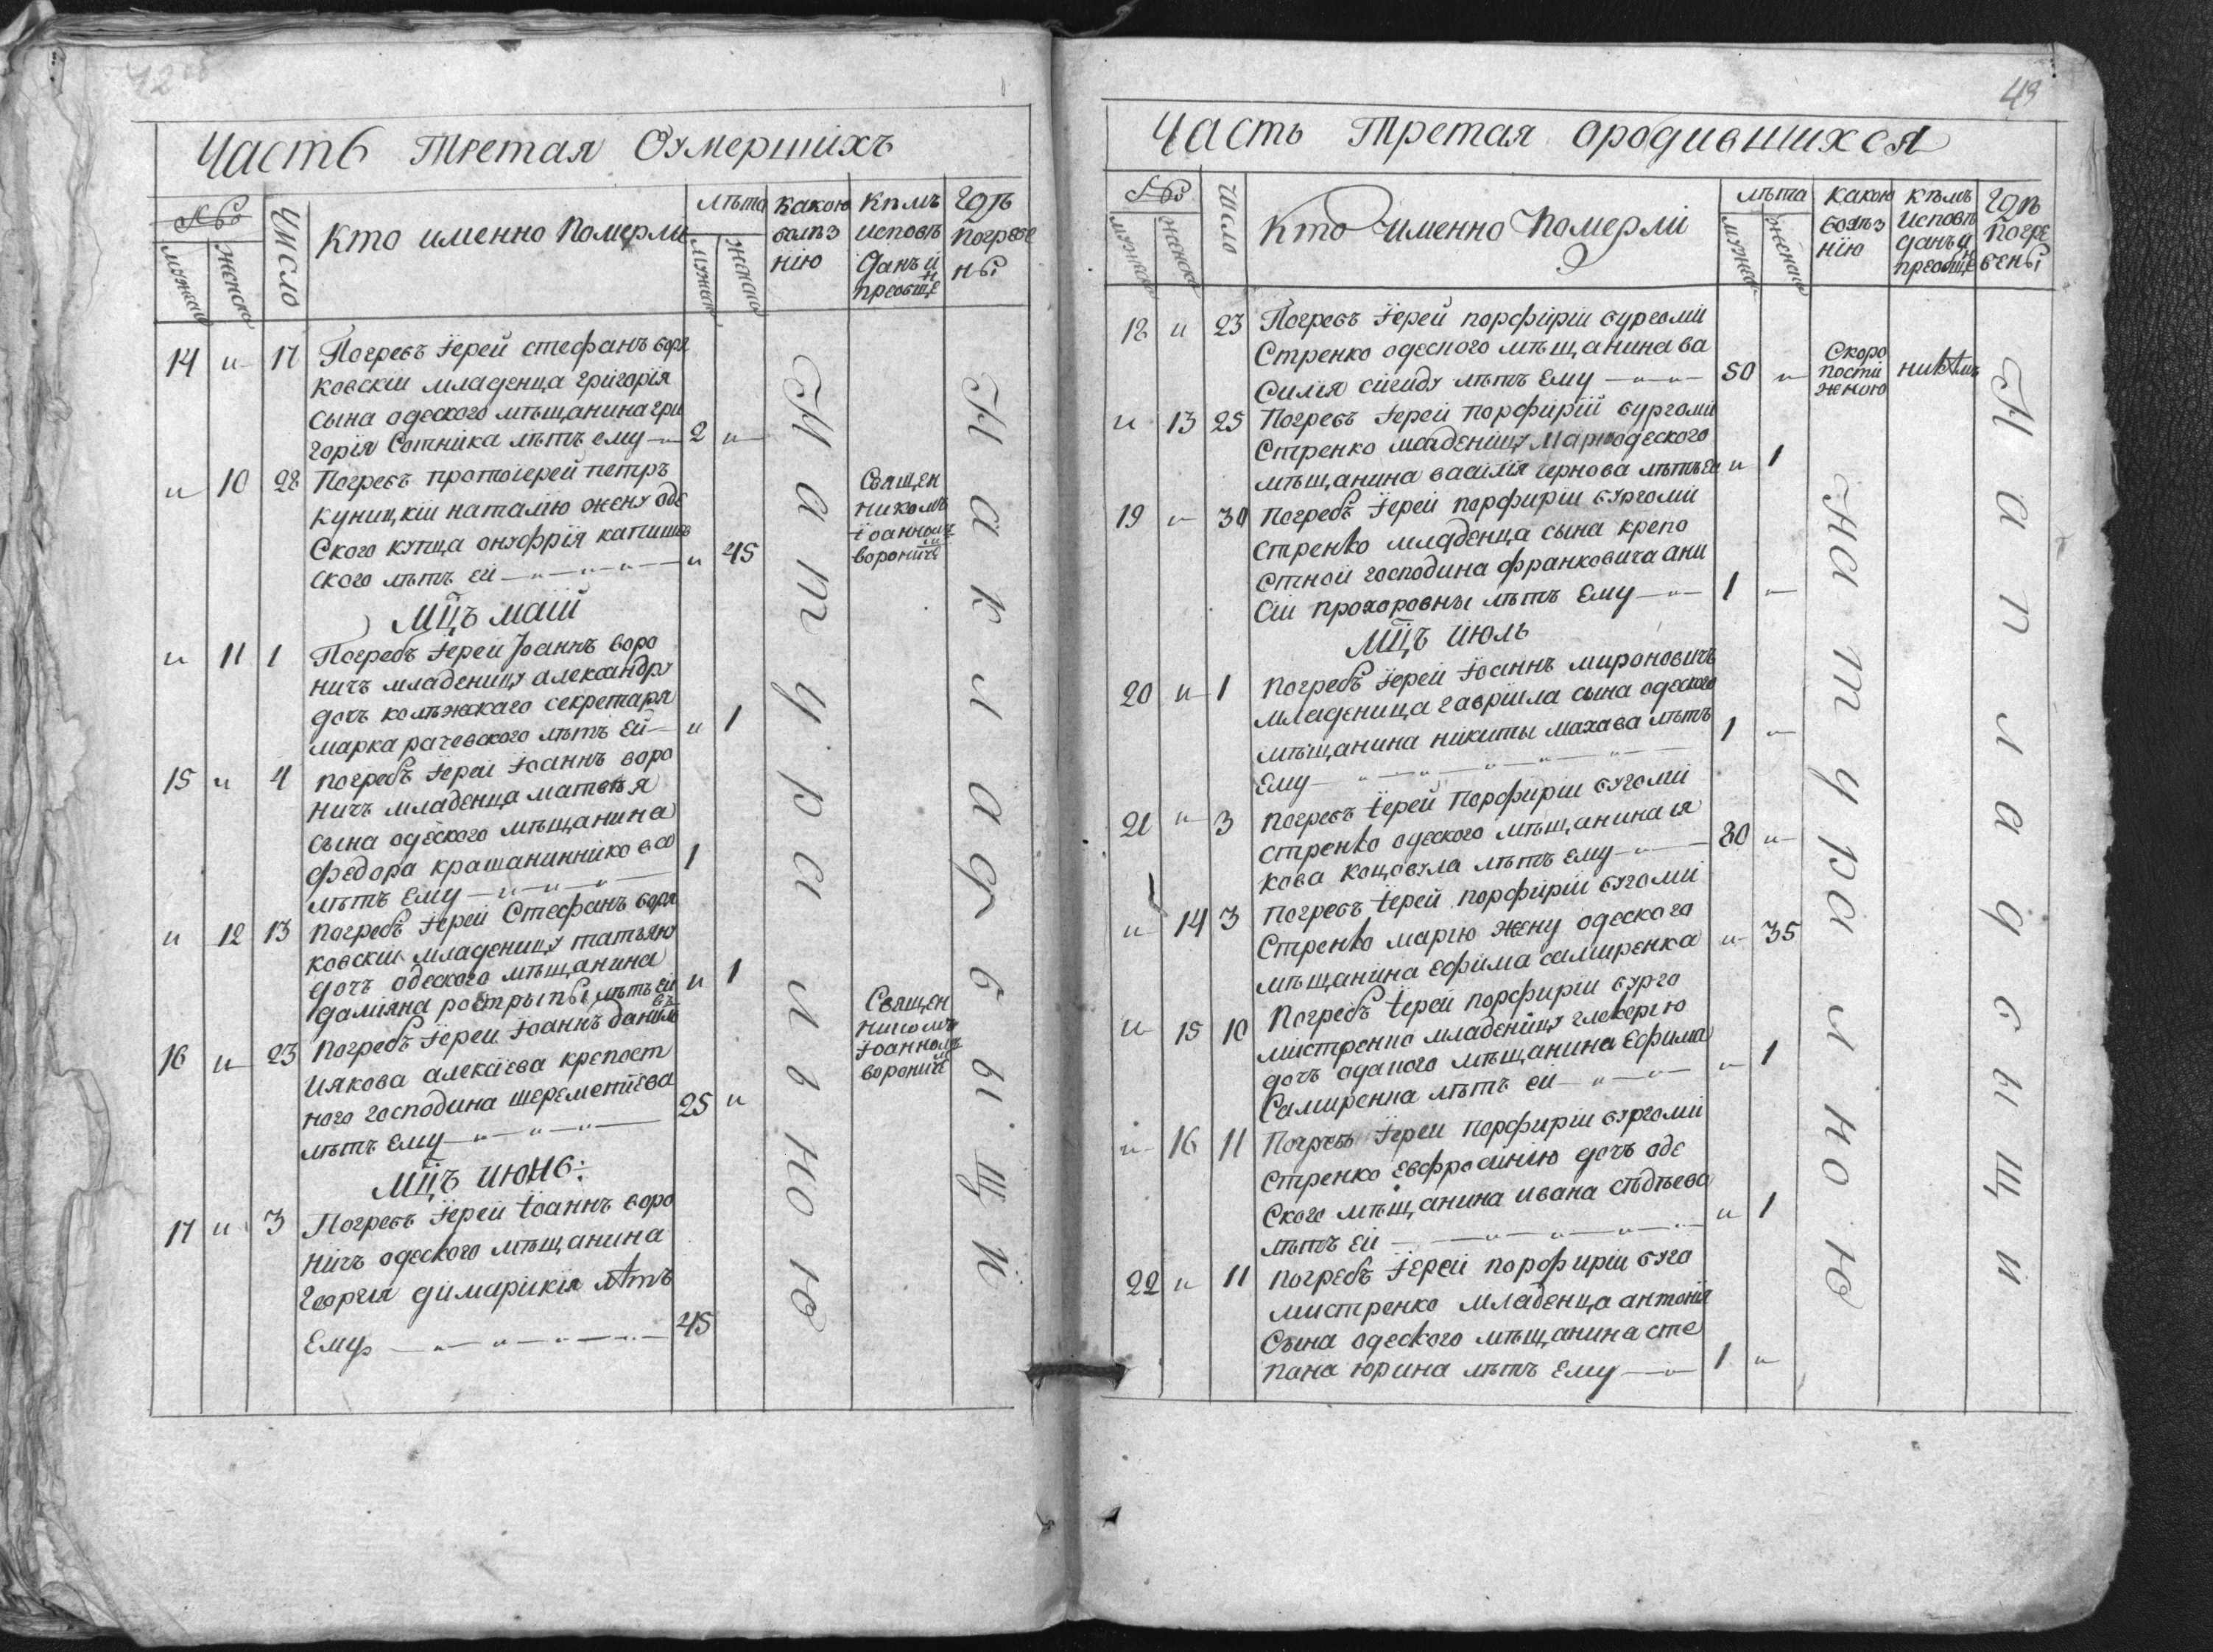 42 об
Часть Третая Оумершихъ
№ры
мужска
женска
Число
Кто именно Померли
лѣта
мужска
женска
какою
болѣз
нію
кѣмъ
исповѣ
данъ и
преобще
н
Гдѣ
погребе
ны
14 " 17 Погребъ Іерей стефанъ воря
ковскіи младенца григорія
сына одеского мѣщанина гри
горія Сотника лѣтъ ему — 2 "
" 10 28 Погребъ протоіерей петръ
куницкіи наталію жену оде
Ского купца онуфрія капишев
ского лѣтъ ей — " 45
Священ
никомъ
іоанномъ
воронич
Мцъ маій
" 11 1 Погребъ Іерей Іоаннъ воро
ничъ младеницу александру
дочъ колѣжскаго секретаря
марка рачевского лѣтъ ей — " 1
15 " 4 погребъ Іерей Іоаннъ воро
ничъ младенца матвѣя
сына одеского мѣщанина
федора крашанинникова
лѣтъ ему — 1
" 12 13 погребъ Іерей Стефанъ воря
ковскіи младеницу татьяну
дочъ одеского мѣщанина
даміяна рострыпы лѣтъ ей " 1
16 " 23 погребъ Іереи Іоаннъ
иякова алексіева крепост
ного господина шереметіева
лѣтъ ему — 25 "
Священ
никомъ
Іоанномъ
воронич
Мцъ июнь:
17 " 3 Погребъ Іереи Іоаннъ воро
ничъ одеского мѣщанина
Георгия димарикія лѣтъ
Ему — 45
Натуралною
На кладбыщи
43
Часть Третая ородившихся
№ры
мужска
женска
число
Кто именно Померли
лѣта
мужска
женска
какою
болѣз
нію
кѣмъ
исповѣ
данъ и
преобще
н
Гдѣ
Погре
бены
18 " 23 Погребъ Іерей порфиріи бургоми
Стренко одесного мѣщанина ва
силія сигиду лѣтъ ему — 50 "
Скоро
пости
жною
никѣмъ
" 13 25 Погребъ Іерей порфиріи бургоми
Стренко младеницу Марию одеского
мѣщанина василія чернова лѣтъ ей " 1
19 " 30 Погребъ Іерей порфиріи бургоми
стренко младенца сына крепо
стной господина франковича ани
сіи прохоровны лѣтъ Ему — 1 "
Мцъ июль
20 " 1 погребъ Іерей Іоаннъ мироновичъ
младеница гавриила сына одеского
мѣщанина никиты махава лѣтъ
Ему — 1 "
21 " 3 погребъ іерей Порфиріи бугоми
стренко одеского мѣщанина ия
кова коцовула лѣтъ ему — 80 "
" 14 3 погребъ іерей порфиріи бугоми
Стренко марию жену одеского
мѣщанина ефима самиренка " 35
" 15 10 Погребъ іерей порфиріи бурго
мистренко младеницу гликерію
дочъ оданого мѣщанина Ефима
Самиренна лѣтъ ей — " 1
" 16 11 Погребъ Іереи порфиріи бургоми
стренко евфросинію дочъ оде
Ского мѣщанина ивана сѣдѣева
лѣтъ ей — " 1
22 " 11 погребъ Іерей порфиріи буго
мистренко младенца антонія
Сына одеского мѣщанина сте
пана юрина лѣтъ Ему — 1 "
Натуралною
На кладбыщи